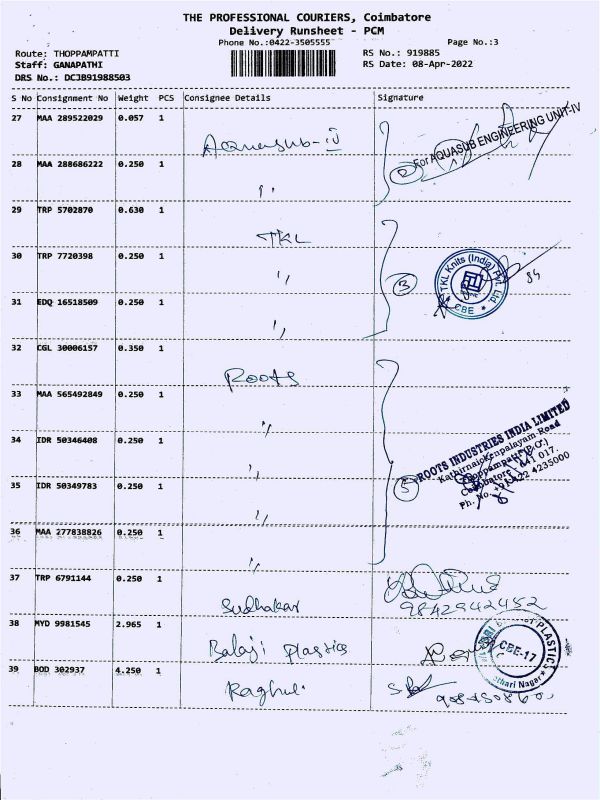 THE PROFESSIONAL COURIERS, Coimbatore
Delivery Runsheet - PCM
Phone No.:0422-3505555 Page No.:3
Route: THOPPAMPATTI RS No.: 919885
Staff: GANAPATHI RS Date: 08-Apr-2022
DRS No.: DCJB91988503
S No Consignment No Weight PCS Consignee Details Signature
27 MAA 289522029 0.057 1 Aquasub-IV
For AQUASUB ENGINEERING UNIT-IV
28 MAA 288686222 0.250 1 "
2
29 TRP 5702870 0.630 1 TKL
30 TRP 7720398 0.250 1 "
3
TKL Knits (India) Pvt. Ltd.
CBE
31 EDQ 16518509 0.250 1 "
32 CGL 30006157 0.350 1 Roots
33 MAA 565492849 0.250 1 "
34 IDR 50346408 0.250 1 "
ROOTS INDUSTRIES INDIA LIMITED
Kathirnaickenpalayam Road
Thoppampatti (P.O.)
Coimbatore 641 017.
Ph. No. +91 422 4235000
35 IDR 50349783 0.250 1 "
5
36 MAA 277838826 0.250 1 "
37 TRP 6791144 0.250 1 Sudhakar
9842942452
38 MYD 9981545 2.965 1 Balaji Plastics
PLASTICS
CBE-17
39 BOD 302937 4.250 1 Raghul